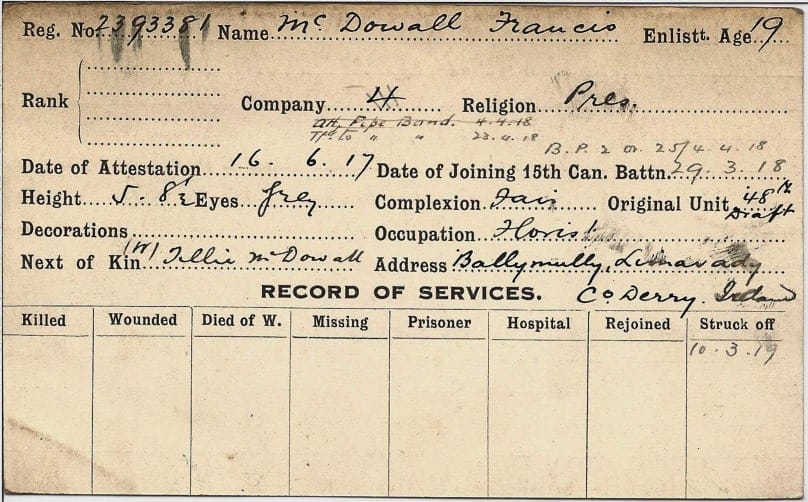 Reg. No. 2393381 Name Mc Dowall Francis Enlistt. Age 19
Rank Company 4 Religion Pres.
Att. Pipe Band. 4.4.18
Tfd. to " " 23.4.18
B.P. 2 or. 25/4.4.18
Date of Attestation 16.6.17 Date of Joining 15th Can. Battn. 29.3.18
Height 5-8½ Eyes Grey Complexion Fair Original Unit 48th Draft
Decorations Occupation Florist
Next of Kin (W) Tillie McDowall Address Ballymully, Limavady
RECORD OF SERVICES. Co Derry. Ireland
Killed Wounded Died of W. Missing Prisoner Hospital Rejoined Struck off
10.3.19